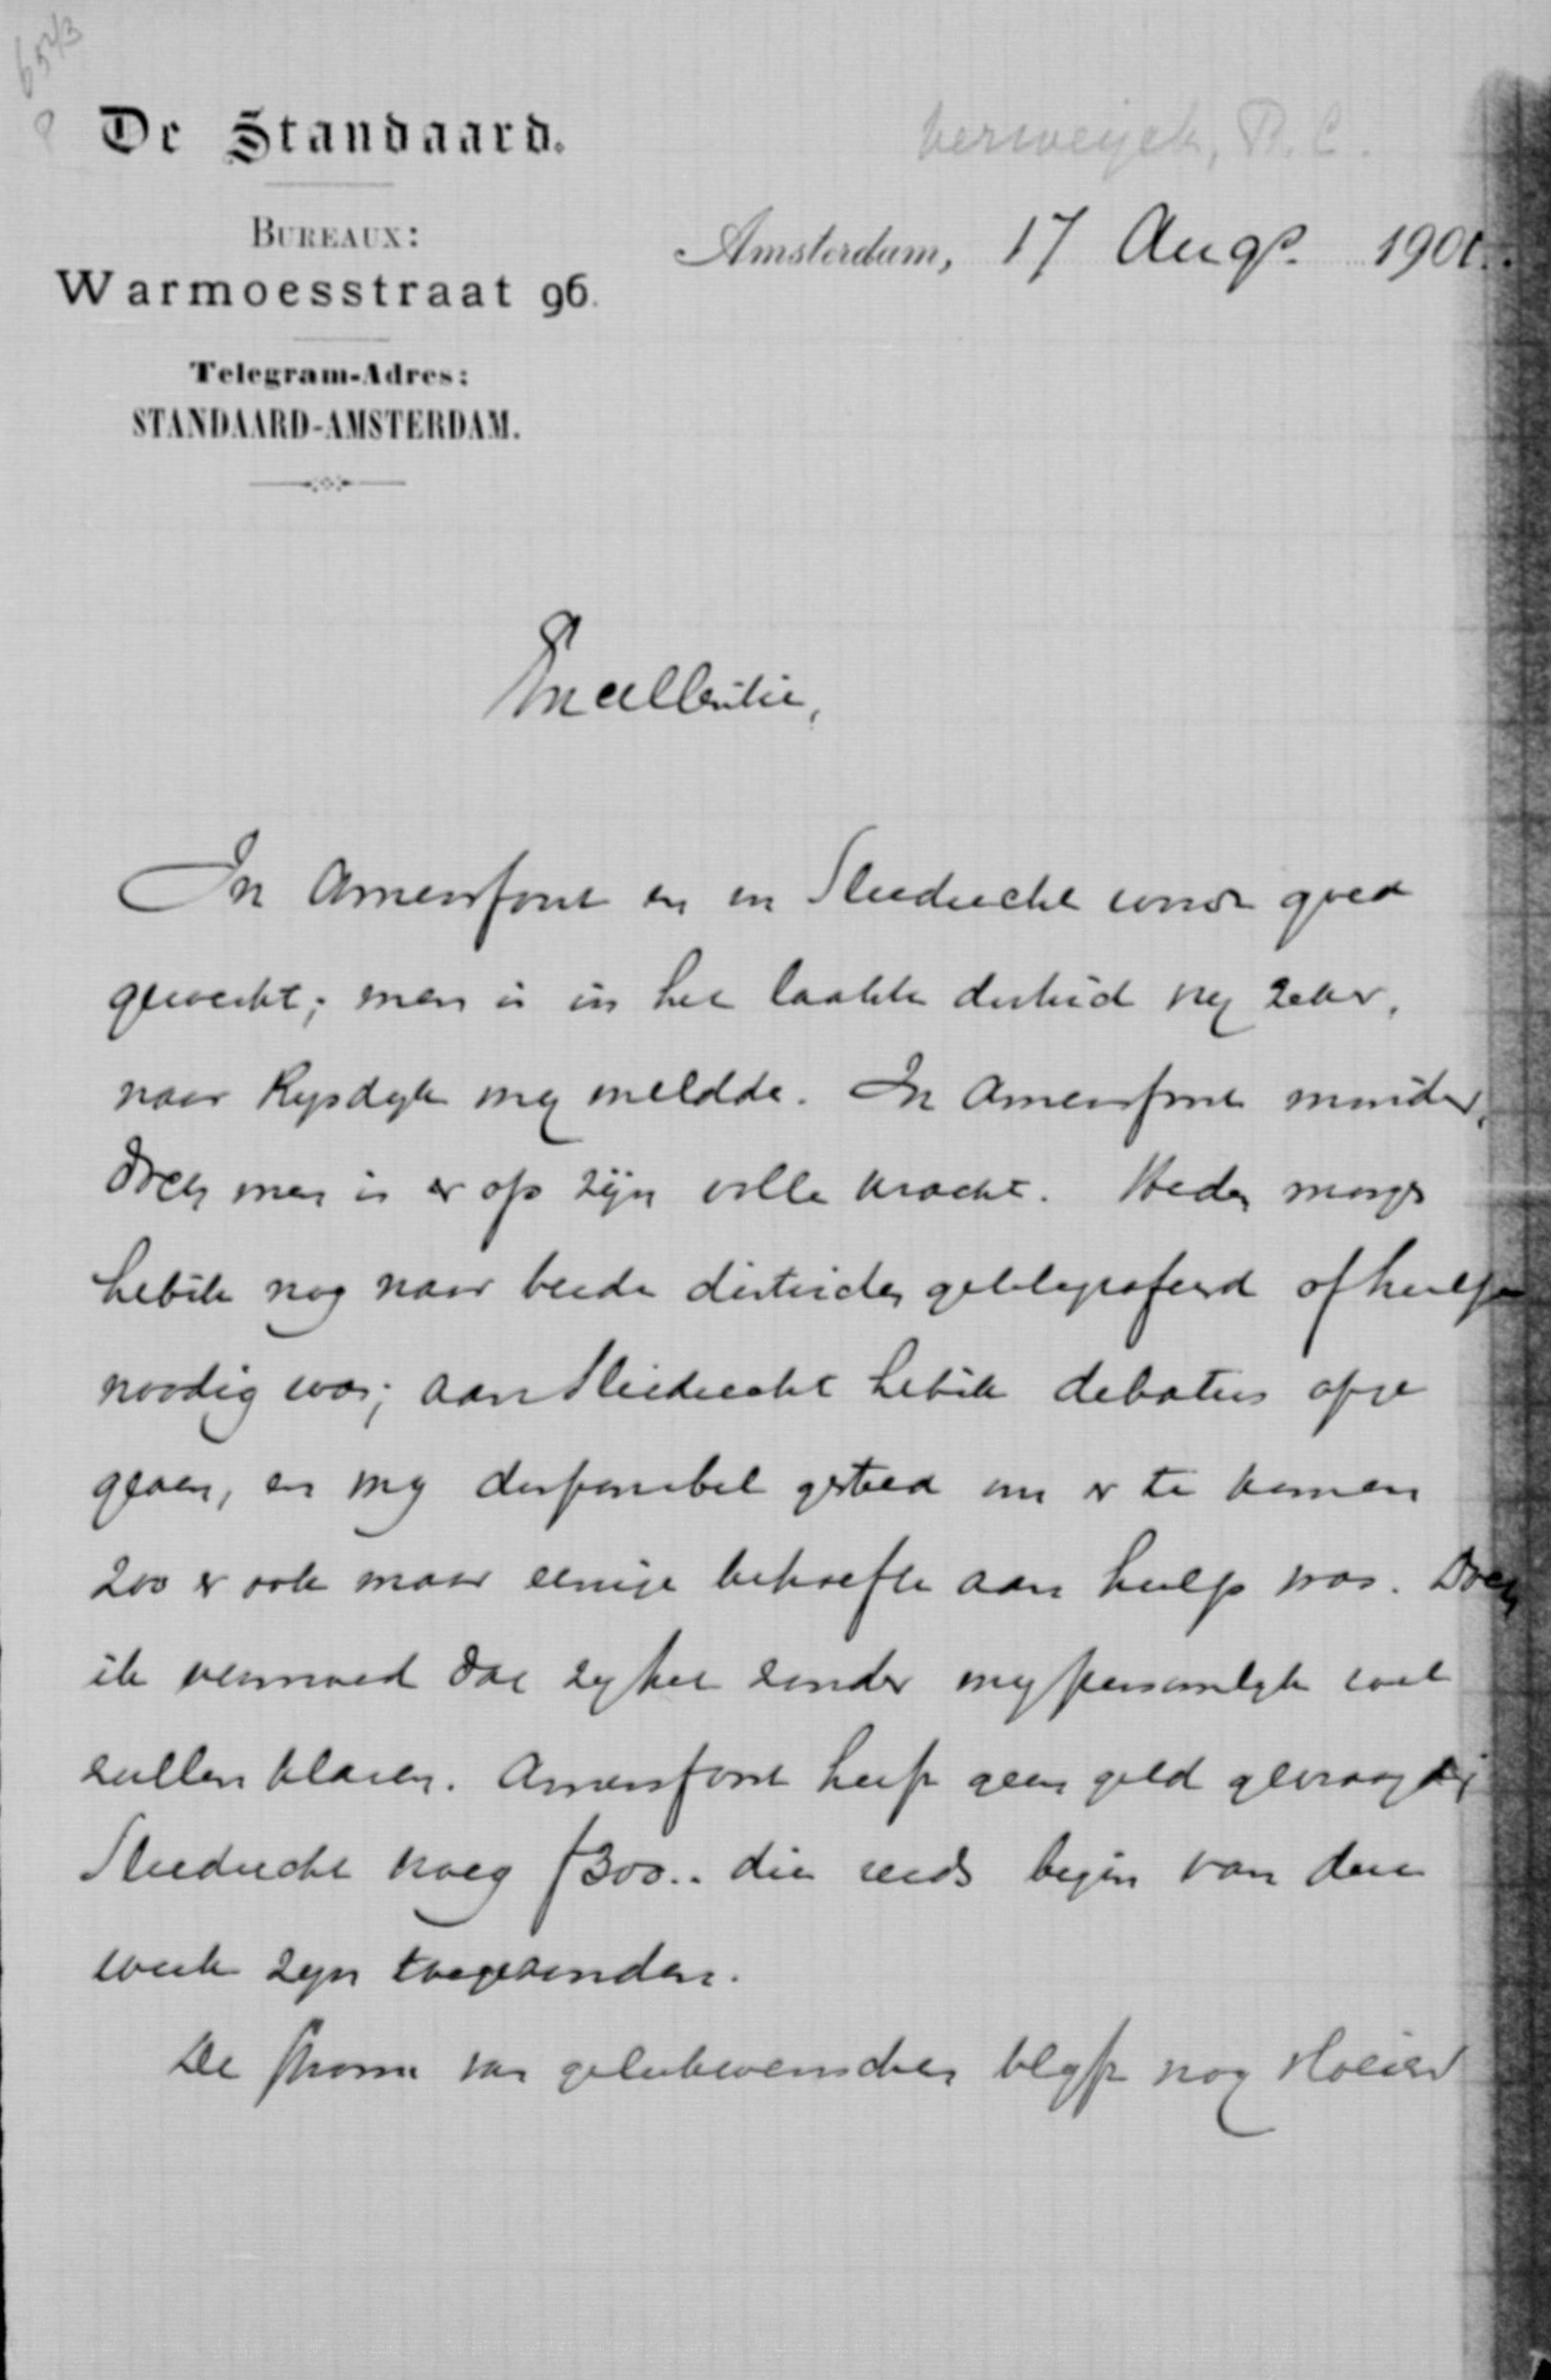 6543
De Standaard.
Verweijck, P. C.
BUREAUX:
Amsterdam, 17 Augs. 1901.
Warmoesstraat 96.
Telegram-Adres:
STANDAARD-AMSTERDAM.
Excellentie,
In Amersfoort en in Sliedrecht wordt goed
gewerkt; men is in het laatste district vrij zeker,
naar Rijsdijk mij meldde. In Amersfoort minder,
doch men is er op zijn volle kracht. Heden morgen
heb ik nog naar beide districten getelegrafeerd of hulp
noodig was; aan Sliedrecht heb ik debaters opge
geven, en mij disponibel gesteld om er te komen
zoo er ook maar eenige behoefte aan hulp was. Doch
ik vermoed dat zij het zonder mij persoonlijk wel
zullen klaren. Amersfoort heeft geen geld gevraagd;
Sliedrecht vroeg f300.. die reeds begin van deze
week zijn toegezonden.
De stroom van gelukwenschen blijft nog